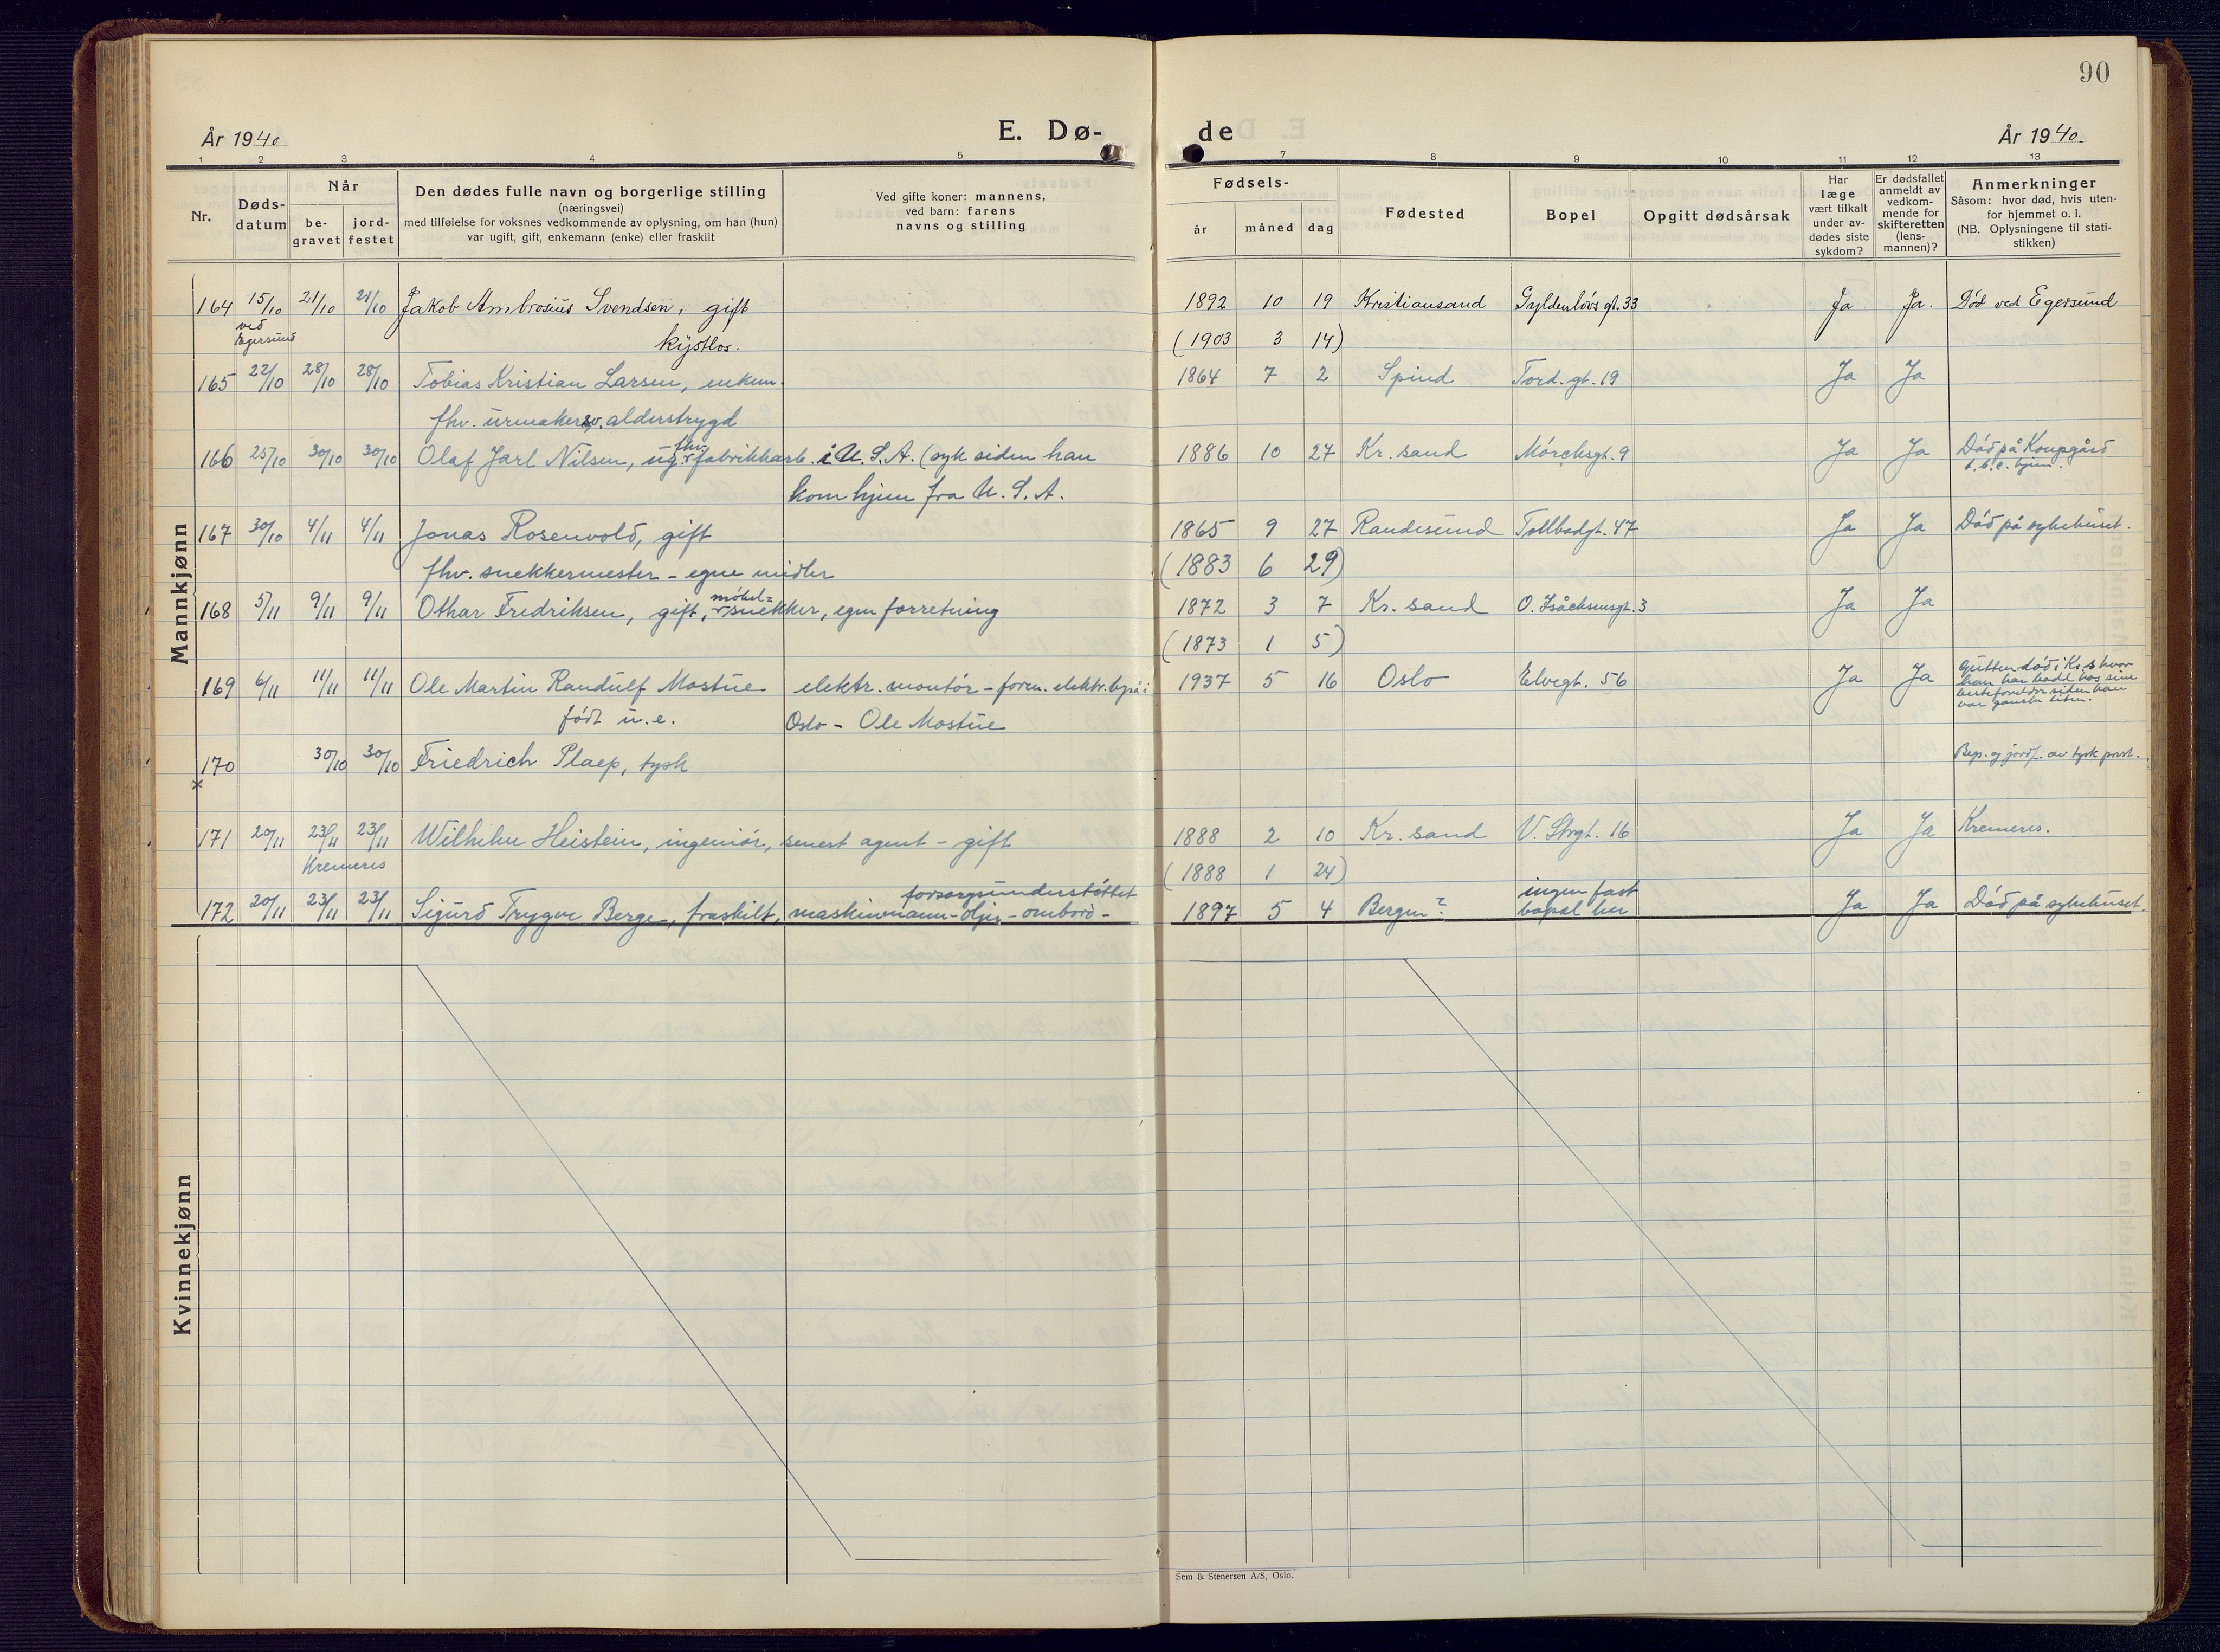 90
År 1940
E. Dø-
de
År 1940.
1 2 3 4 5
7 8 9 10 11 12 13
Nr.
Døds-
datum
Når
be-
gravet
jord-
festet
Den dødes fulle navn og borgerlige stilling
(næringsvei)
med tilføielse for voksnes vedkommende av oplysning, om han (hun)
var ugift, gift, enkemann (enke) eller fraskilt
Ved gifte koner: mannens,
ved barn: farens
navns og stilling
Fødsels-
år måned dag
Fødested
Bopel
Opgitt dødsårsak
Har
læge
vært tilkalt
under av-
dødes siste
sykdom?
Er dødsfallet
anmeldt av
vedkom-
mende for
skifteretten
(lens-
mannen)?
Anmerkninger
Såsom: hvor død, hvis uten-
for hjemmet o. l.
(NB. Oplysningene til stati-
stikken)
Mannkjønn
164 15/10 21/10 21/10 Jakob Ambrosius Svendsen, gift 1892 10 19 Kristiansand Gyldenløvs gt. 33 Ja Ja. Død ved Egersund
ved
Egersund
kystlos. (1903 3 14)
165 22/10 28/10 28/10 Tobias Kristian Larsen, enkem. 1864 7 2 Spind Tord. gt. 19 Ja Ja
fhv. urmaker, alderstrygd
fhv.
166 25/10 30/10 30/10 Olaf Jarl Nilsen, ug. fabrikkarb. i U.S.A. (syk siden han 1886 10 27 Kr.sand Mørcksgt. 9 Ja Ja Død på Kongsgård
t.b.c. hjem.
kom hjem fra U.S.A.
167 30/10 4/11 4/11 Jonas Rosenvold, gift 1865 9 27 Randesund Tollbodgt. 47 Ja Ja Død på sykehuset.
fhv. snekkermester - egne midler (1883 6 29)
møbel=
168 5/11 9/11 9/11 Othar Fredriksen, gift, snekker, egen forretning 1872 3 7 Kr.sand O. Isåchsensgt. 3 Ja Ja
(1873 1 5)
169 6/11 11/11 11/11 Ole Martin Randulf Mostue elektr. montør - foren. elektr. byrå i 1937 5 16 Oslo Elvegt. 56 Ja Ja Gutten død i Kr.s hvor
han har bodd hos sine
besteforeldre siden han
var ganske liten.
født u.e. Oslo - Ole Mostue
170 30/10 30/10 Friedrich Plaep, tysk Begr. og jordf. av tysk prest.
x
171 20/11 23/11 23/11 Wilhelm Heistein, ingeniør, senest agent - gift 1888 2 10 Kr.sand V. Strgt. 16 Ja Ja Kremeres.
Kremeres (1888 1 24)
forsorgsunderstøttet
ingen fast
172 20/11 23/11 23/11 Sigurd Trygve Berge, fraskilt, maskinmann - ombord - 1897 5 4 Bergen? bopel her Ja Ja Død på sykehuset.
Kvinnekjønn
Sem & Stenersen A/S, Oslo.